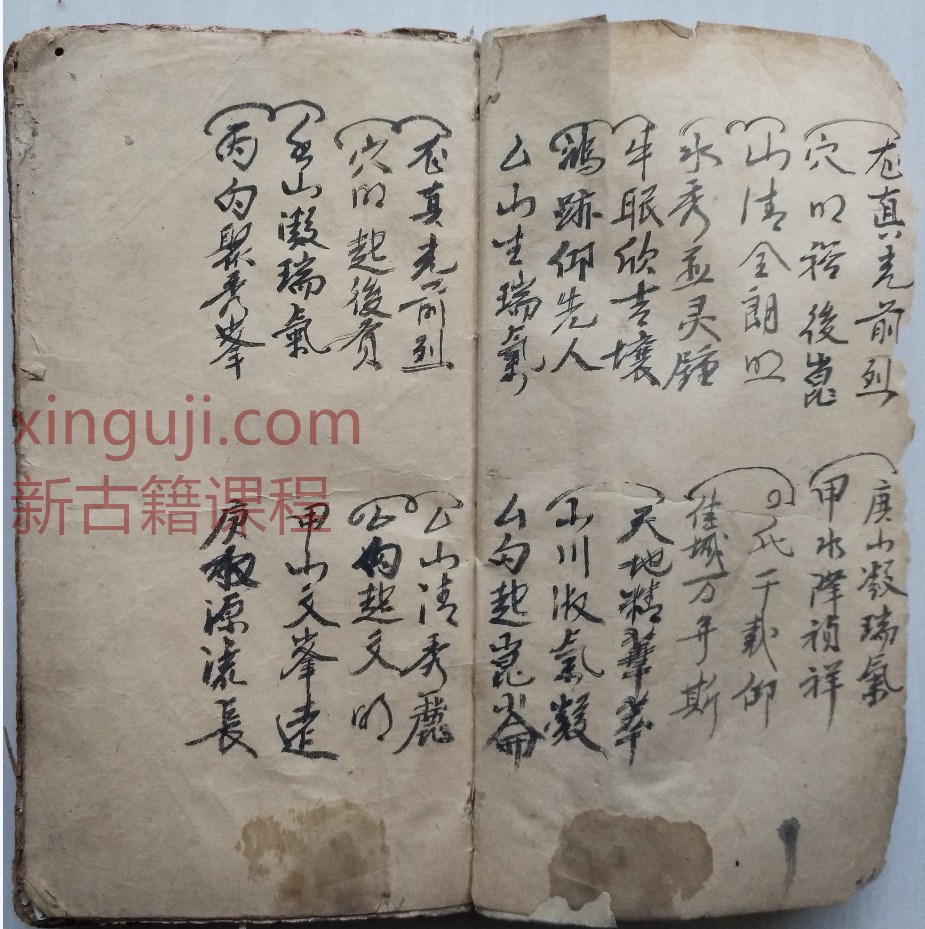 龙真光前烈
穴明裕後崑
山清全朗
水秀並灵鍾
牛眠欣吉壤
鴻跡仰先人
厶山生瑞氣
庚山凝瑞氣
甲水降禎祥
千载仰
佳城万年斯
天地精華萃
山川淑氣凝
厶向起崑崙
龙真光前烈
穴明起後賢
山凝瑞氣
丙向聚秀峯
厶山清秀麗
厶向起文明
甲山文峯遠
庚源流長
xinguji.com
新古籍课程